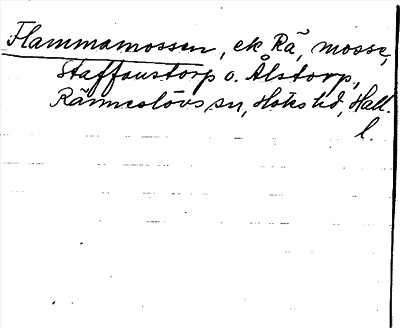 Flammamossen, ek Rä, mosse,
Staffanstorp o. Ålstorp,
Ränneslövs sn, Höks hd, Hall.
l.